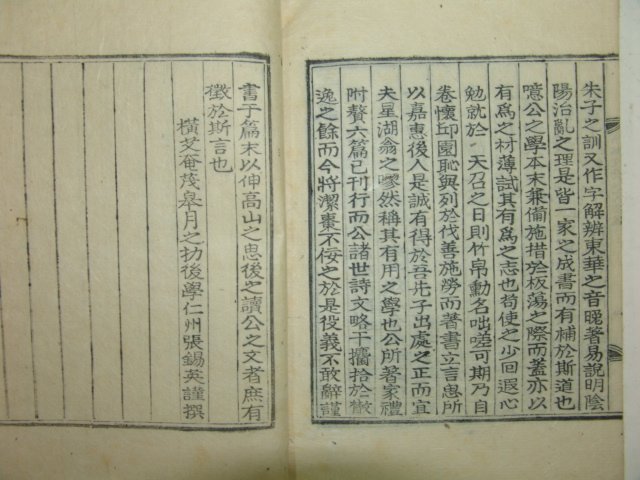 朱子之訓又作字解辨東華之音睇著易說明陰
陽治亂之理是皆一家之成書而有補於斯道也
噫公之學本末兼備施措於板蕩之際而蓋亦以
有爲之材薄試其有爲之志也苟使之少回遐心
勉就於 天召之日則竹帛勳名咄嗟可期乃自
卷懷邱園恥與列於伐善施勞而著書立言思所
以嘉惠後人是誠有得於吾夫子出處之正而宜
夫星湖翁之嘐然稱其有用之學也公所著家禮
附贅六篇已刊行而公諸世詩文略干攟拾於散
逸之餘而今將潔棗不佞之於是役義不敢辭謹
書于篇末以伸高山之思後之讀公之文者庶有
徵於斯言也
橫艾奄茂皋月之㓛後學仁州張錫英謹撰